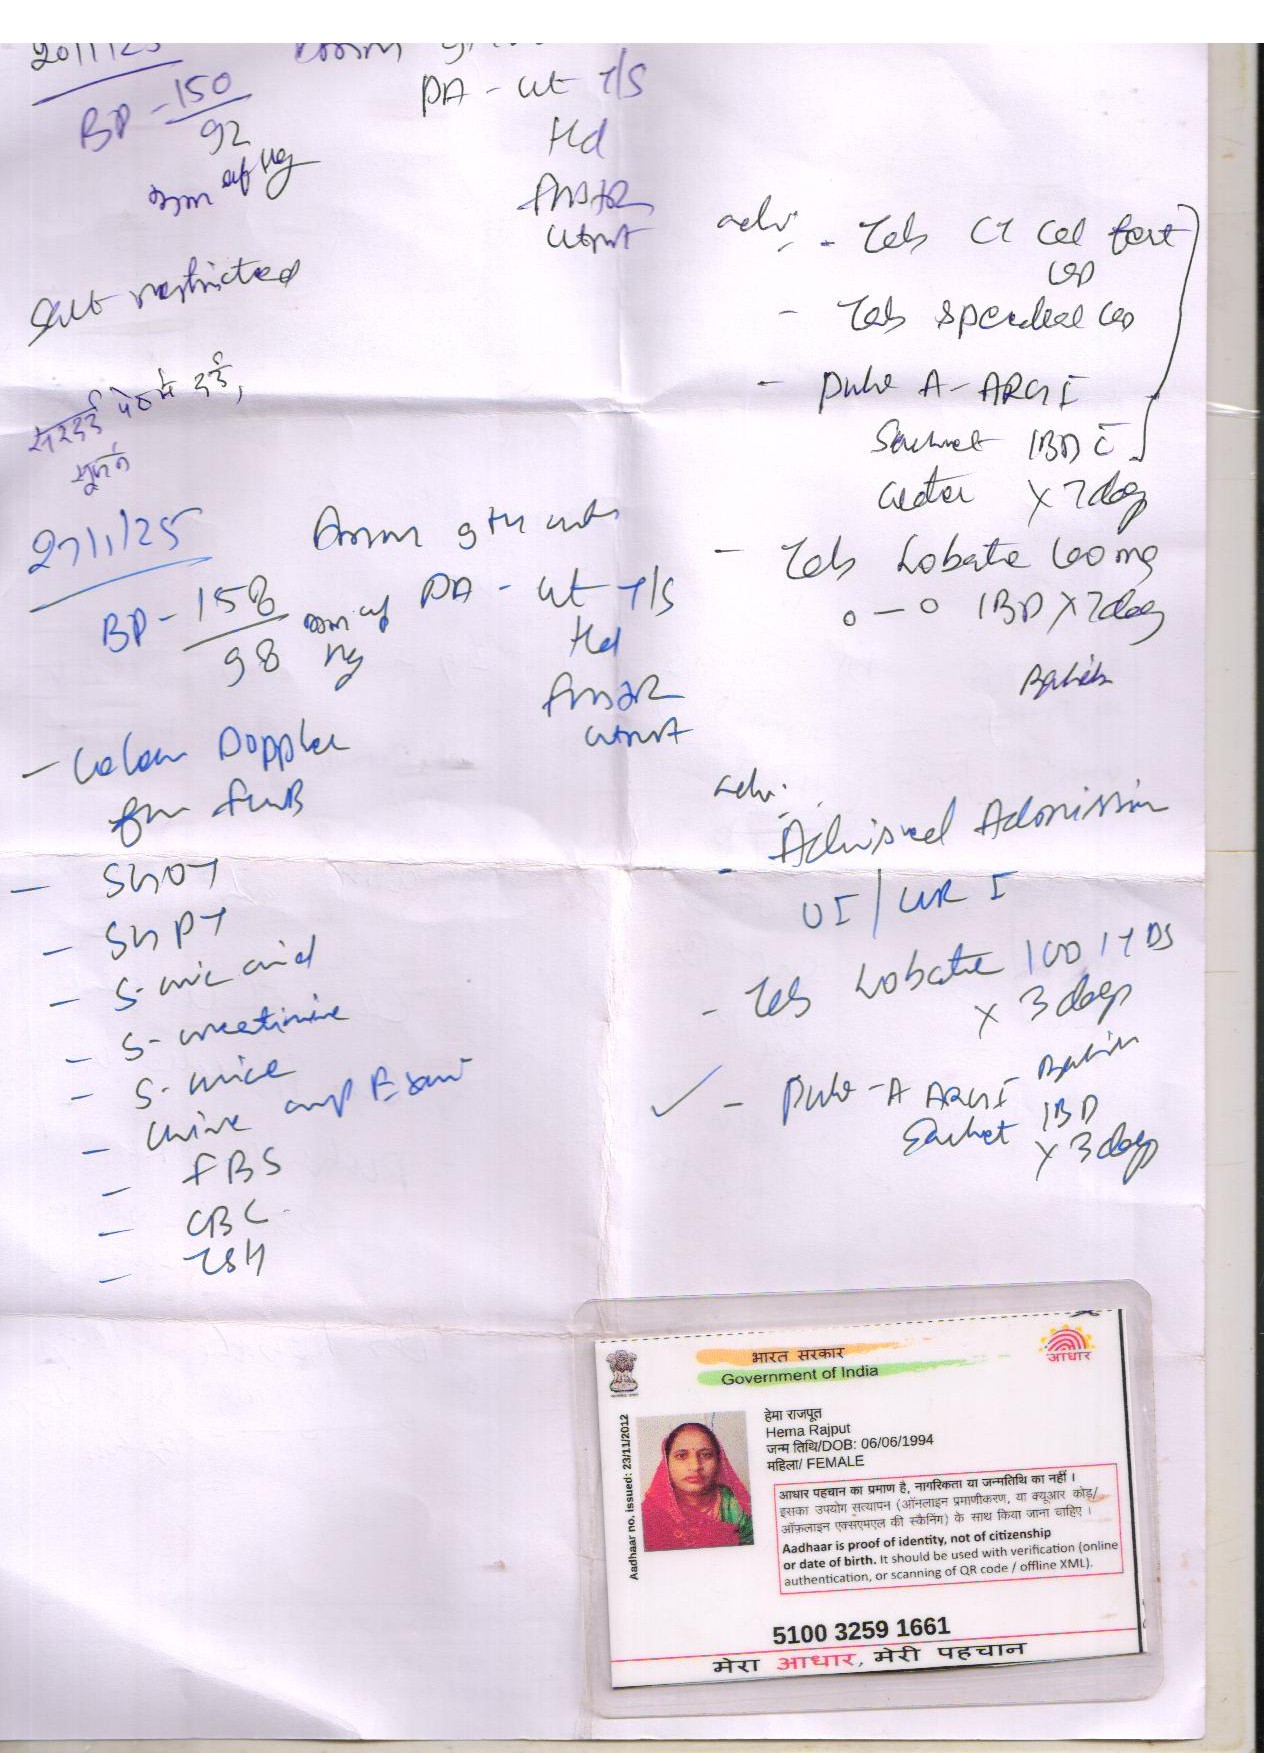 BP - 150
92
mm of Hg
PA - ut T/S
Hd
FHS+R
Salt restricted
adv.
- Tab CT Cal fort
OD
- Tab Spendeal OD
- Pulv A-ARGI
Sachet 1BD c̄
water x 7 days
- Tab Lobate 100 mg
0 - 0 1BD x 7 days
सरदर्द पेट में दर्द,
सूजन
27/1/25
9th
BP - 158
98
mm of
Hg
PA - ut T/S
Hd
- Colour Doppler
for FWB
- SGOT
- SGPT
- S. uric acid
- S- creatinine
- S- urea
- Urine Exam
- FBS
- CBC
- TSH
adv.
- Advised Admission
- Tab Lobate 100 1TDS
x 3 days
- Pulv - A ARGI
Sachet 1BD
x 3 days
भारत सरकार
Government of India
आधार
Aadhaar no. issued: 23/11/2012
हेमा राजपूत
Hema Rajput
जन्म तिथि/DOB: 06/06/1994
महिला/ FEMALE
आधार पहचान का प्रमाण है, नागरिकता या जन्मतिथि का नहीं ।
इसका उपयोग सत्यापन (ऑनलाइन प्रमाणीकरण, या क्यूआर कोड/
ऑफ़लाइन एक्सएमएल की स्कैनिंग) के साथ किया जाना चाहिए ।
Aadhaar is proof of identity, not of citizenship
or date of birth. It should be used with verification (online
authentication, or scanning of QR code / offline XML).
5100 3259 1661
मेरा आधार, मेरी पहचान